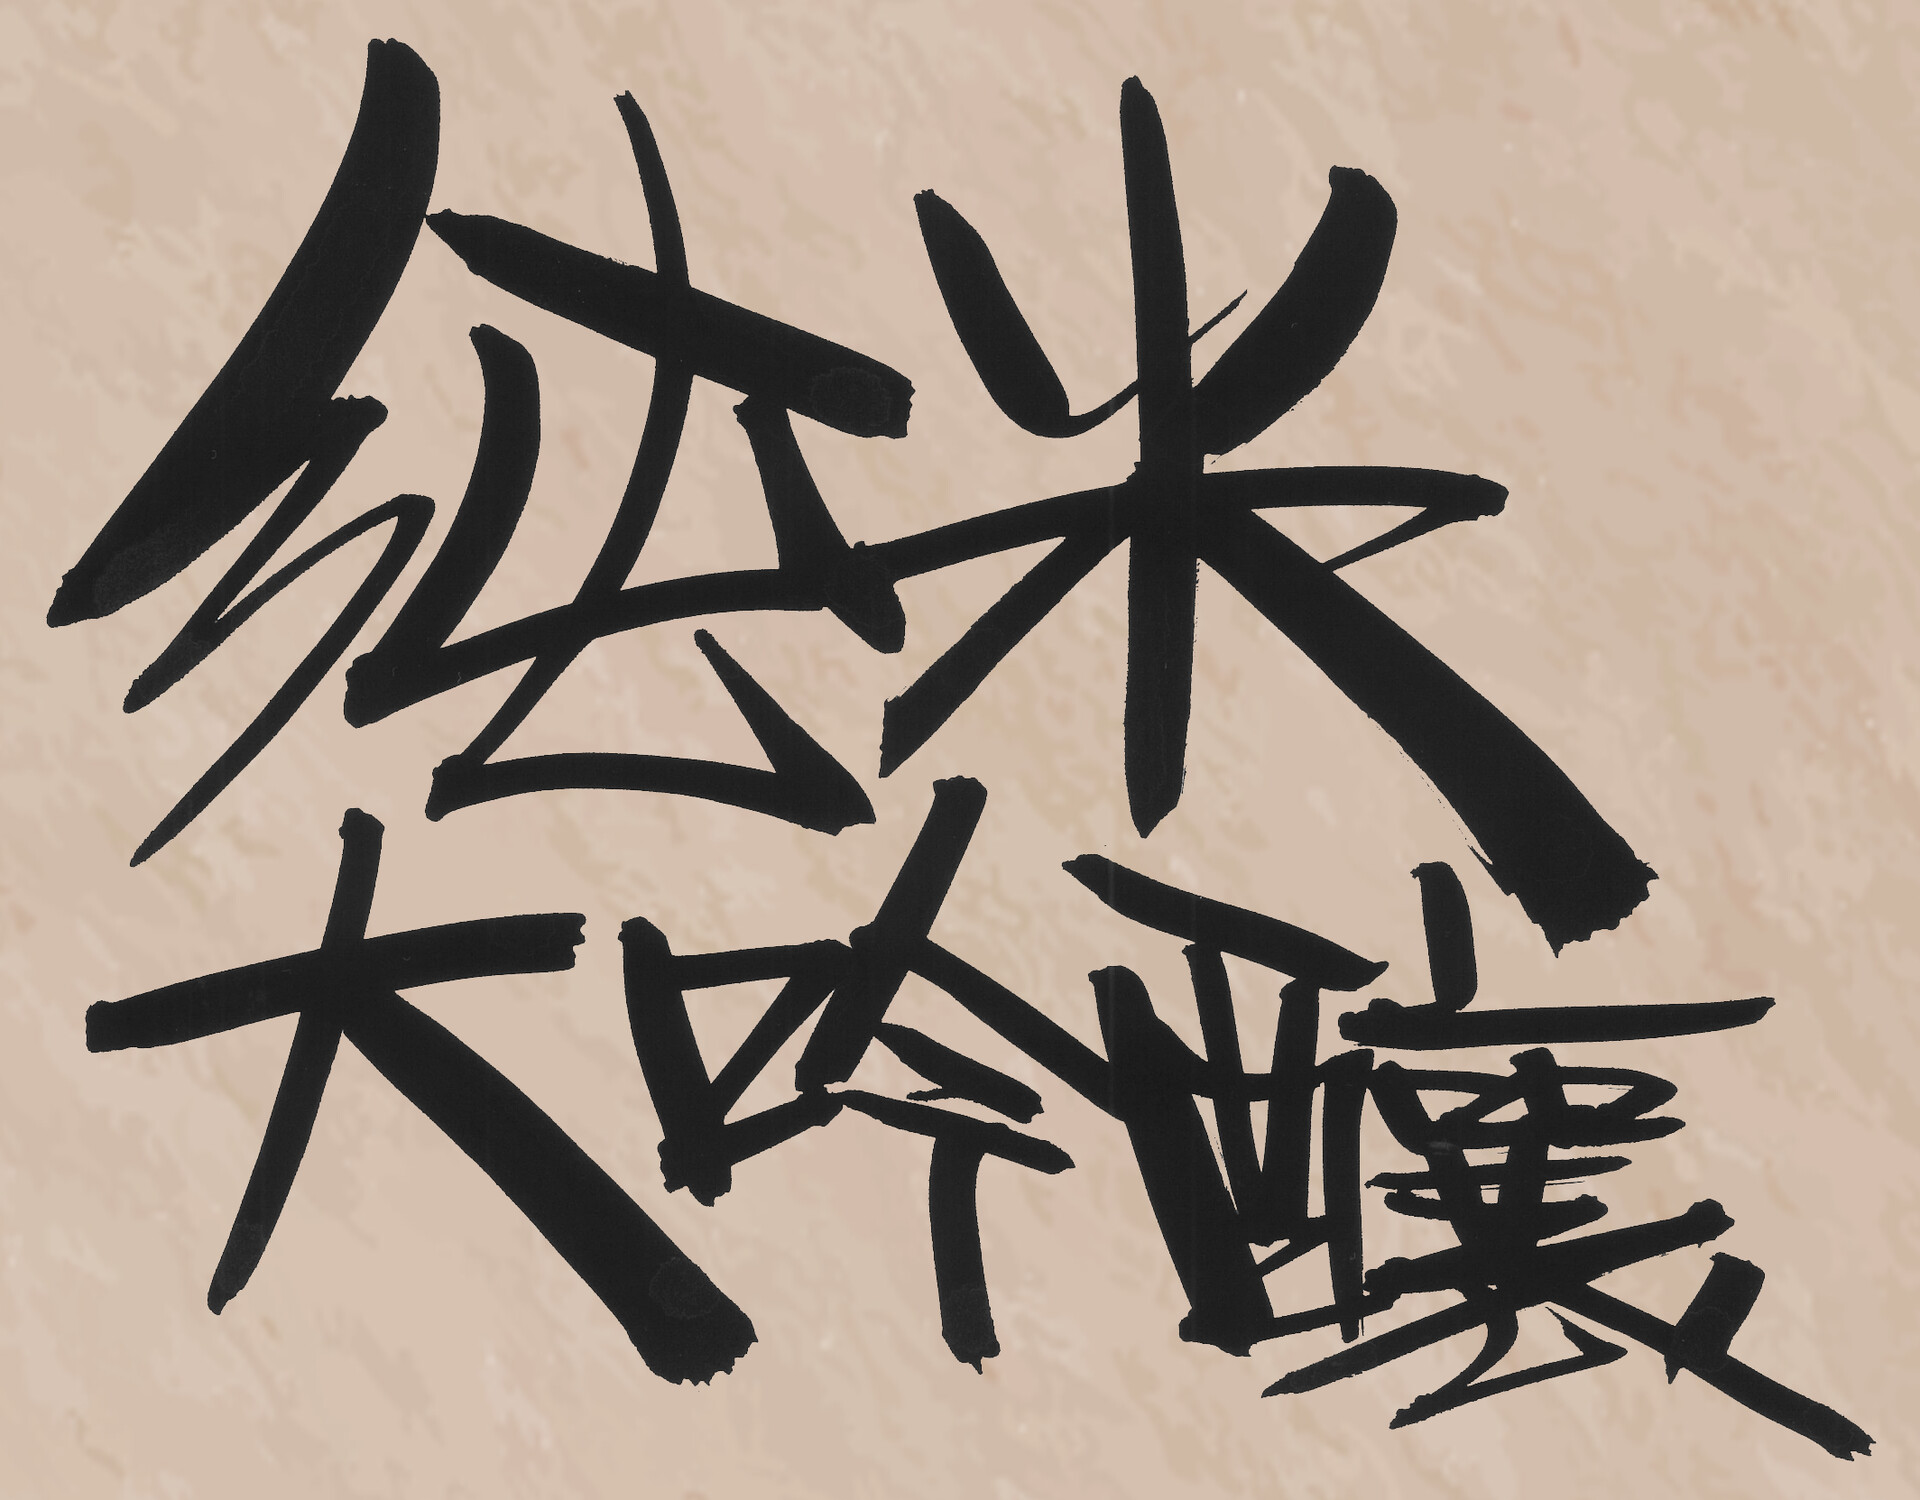 純米
大吟醸